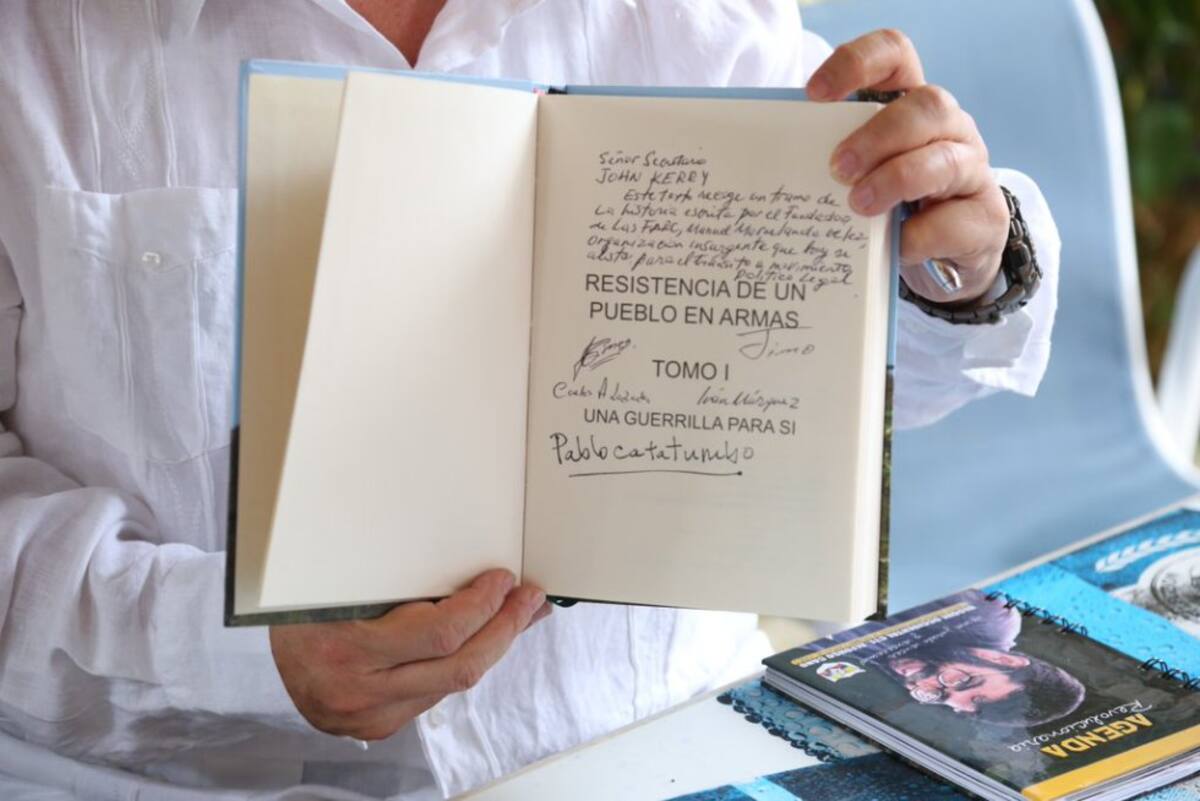 Señor Secretario
JOHN KERRY
Este texto recoge un tramo de
la historia escrita por el fundador
de las FARC, Manuel Marulanda Vélez,
organización insurgente que hoy se
alista para el tránsito a movimiento
político legal.
RESISTENCIA DE UN
PUEBLO EN ARMAS
TOMO I
Carlos A Lozada Iván Márquez
UNA GUERRILLA PARA SI
Pablo catatumbo
AGENDA
Revolucionaria